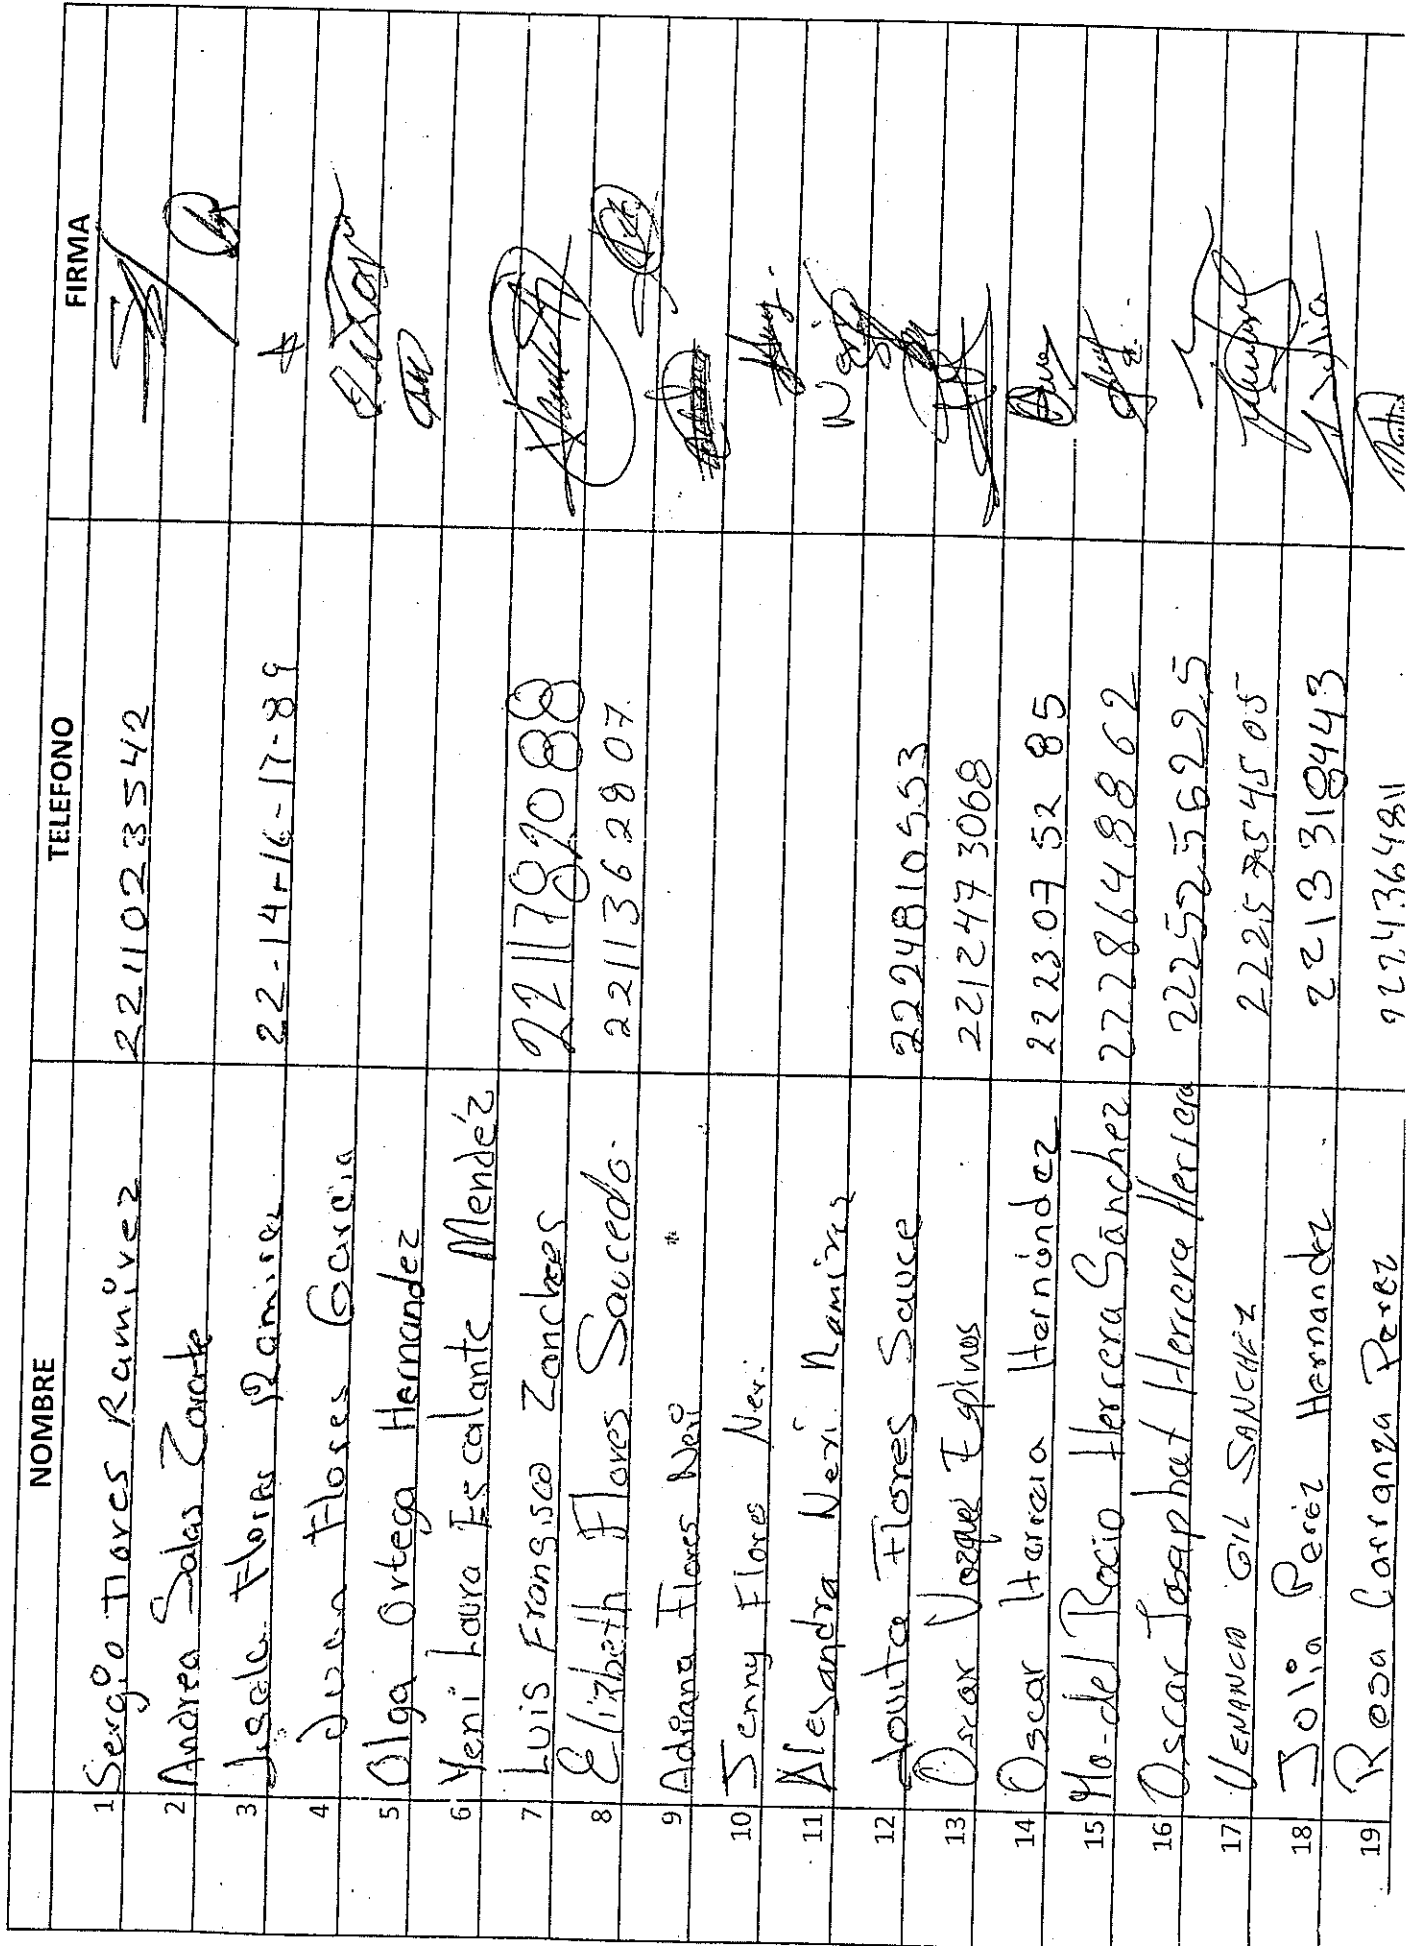 NOMBRE TELEFONO FIRMA
1 Sergio Flores Ramírez 2211023542
2 Andrea Salas Zarate
3 Flores Ramirez 22-14-16-17-89
4 Juan Flores Garcia
5 Olga Ortega Hernandez
6 Yeni Laura Escalante Mendéz
7 Luis Fransisco Zanches 2211789088
8 Elizbeth Flores Saucedo. 2211362807.
9 Adriana Flores Neri
10 Jenny Flores Neri.
11 Alesandra Neri Ramires
12 Jovita Flores Sauce 2224810553
13 Oscar Vazquez Espinos 2212473068
14 Oscar Herrera Hernández 2223075285
15 Ma. del Rocio Herrera Sánchez 2228648862
16 Oscar Josaphat Herrera Herrera 2225256225
17 VENANCIO GIL SANCHEZ
18 Julia Peréz Hernandez 2213318443 Julia
19 Rosa Carranza Perez 2224364811